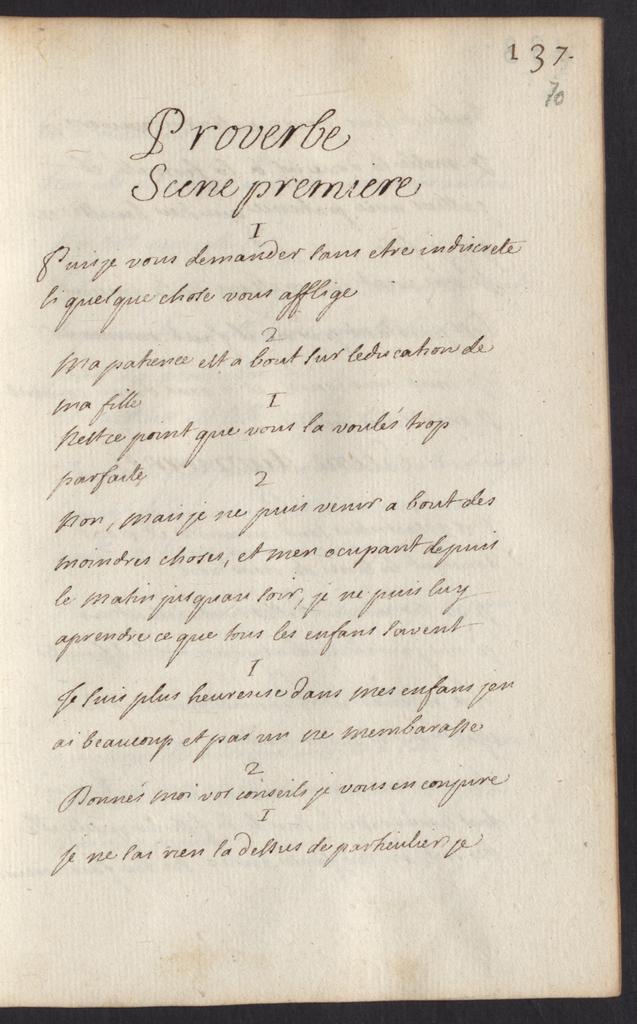 137.
70
Proverbe
Scene premiere
I
Puisje vous demander sans etre indiscrete
si quelque chose vous afflige
2
Ma patience est a bout sur leducation de
ma fille
I
Nestce point que vous la voulés trop
parfaite
2
Non, mais je ne puis venir a bout des
moindres choses, et men ocupant depuis
le matin jusquau soir, je ne puis luy
aprendre ce que tous les enfans savent
I
Je suis plus heureuse dans mes enfans jen
ai beaucoup et pas un ne membarasse
2
Donnés moi vos conseils je vous en conjure
I
Je ne sai rien la dessus de particulier je